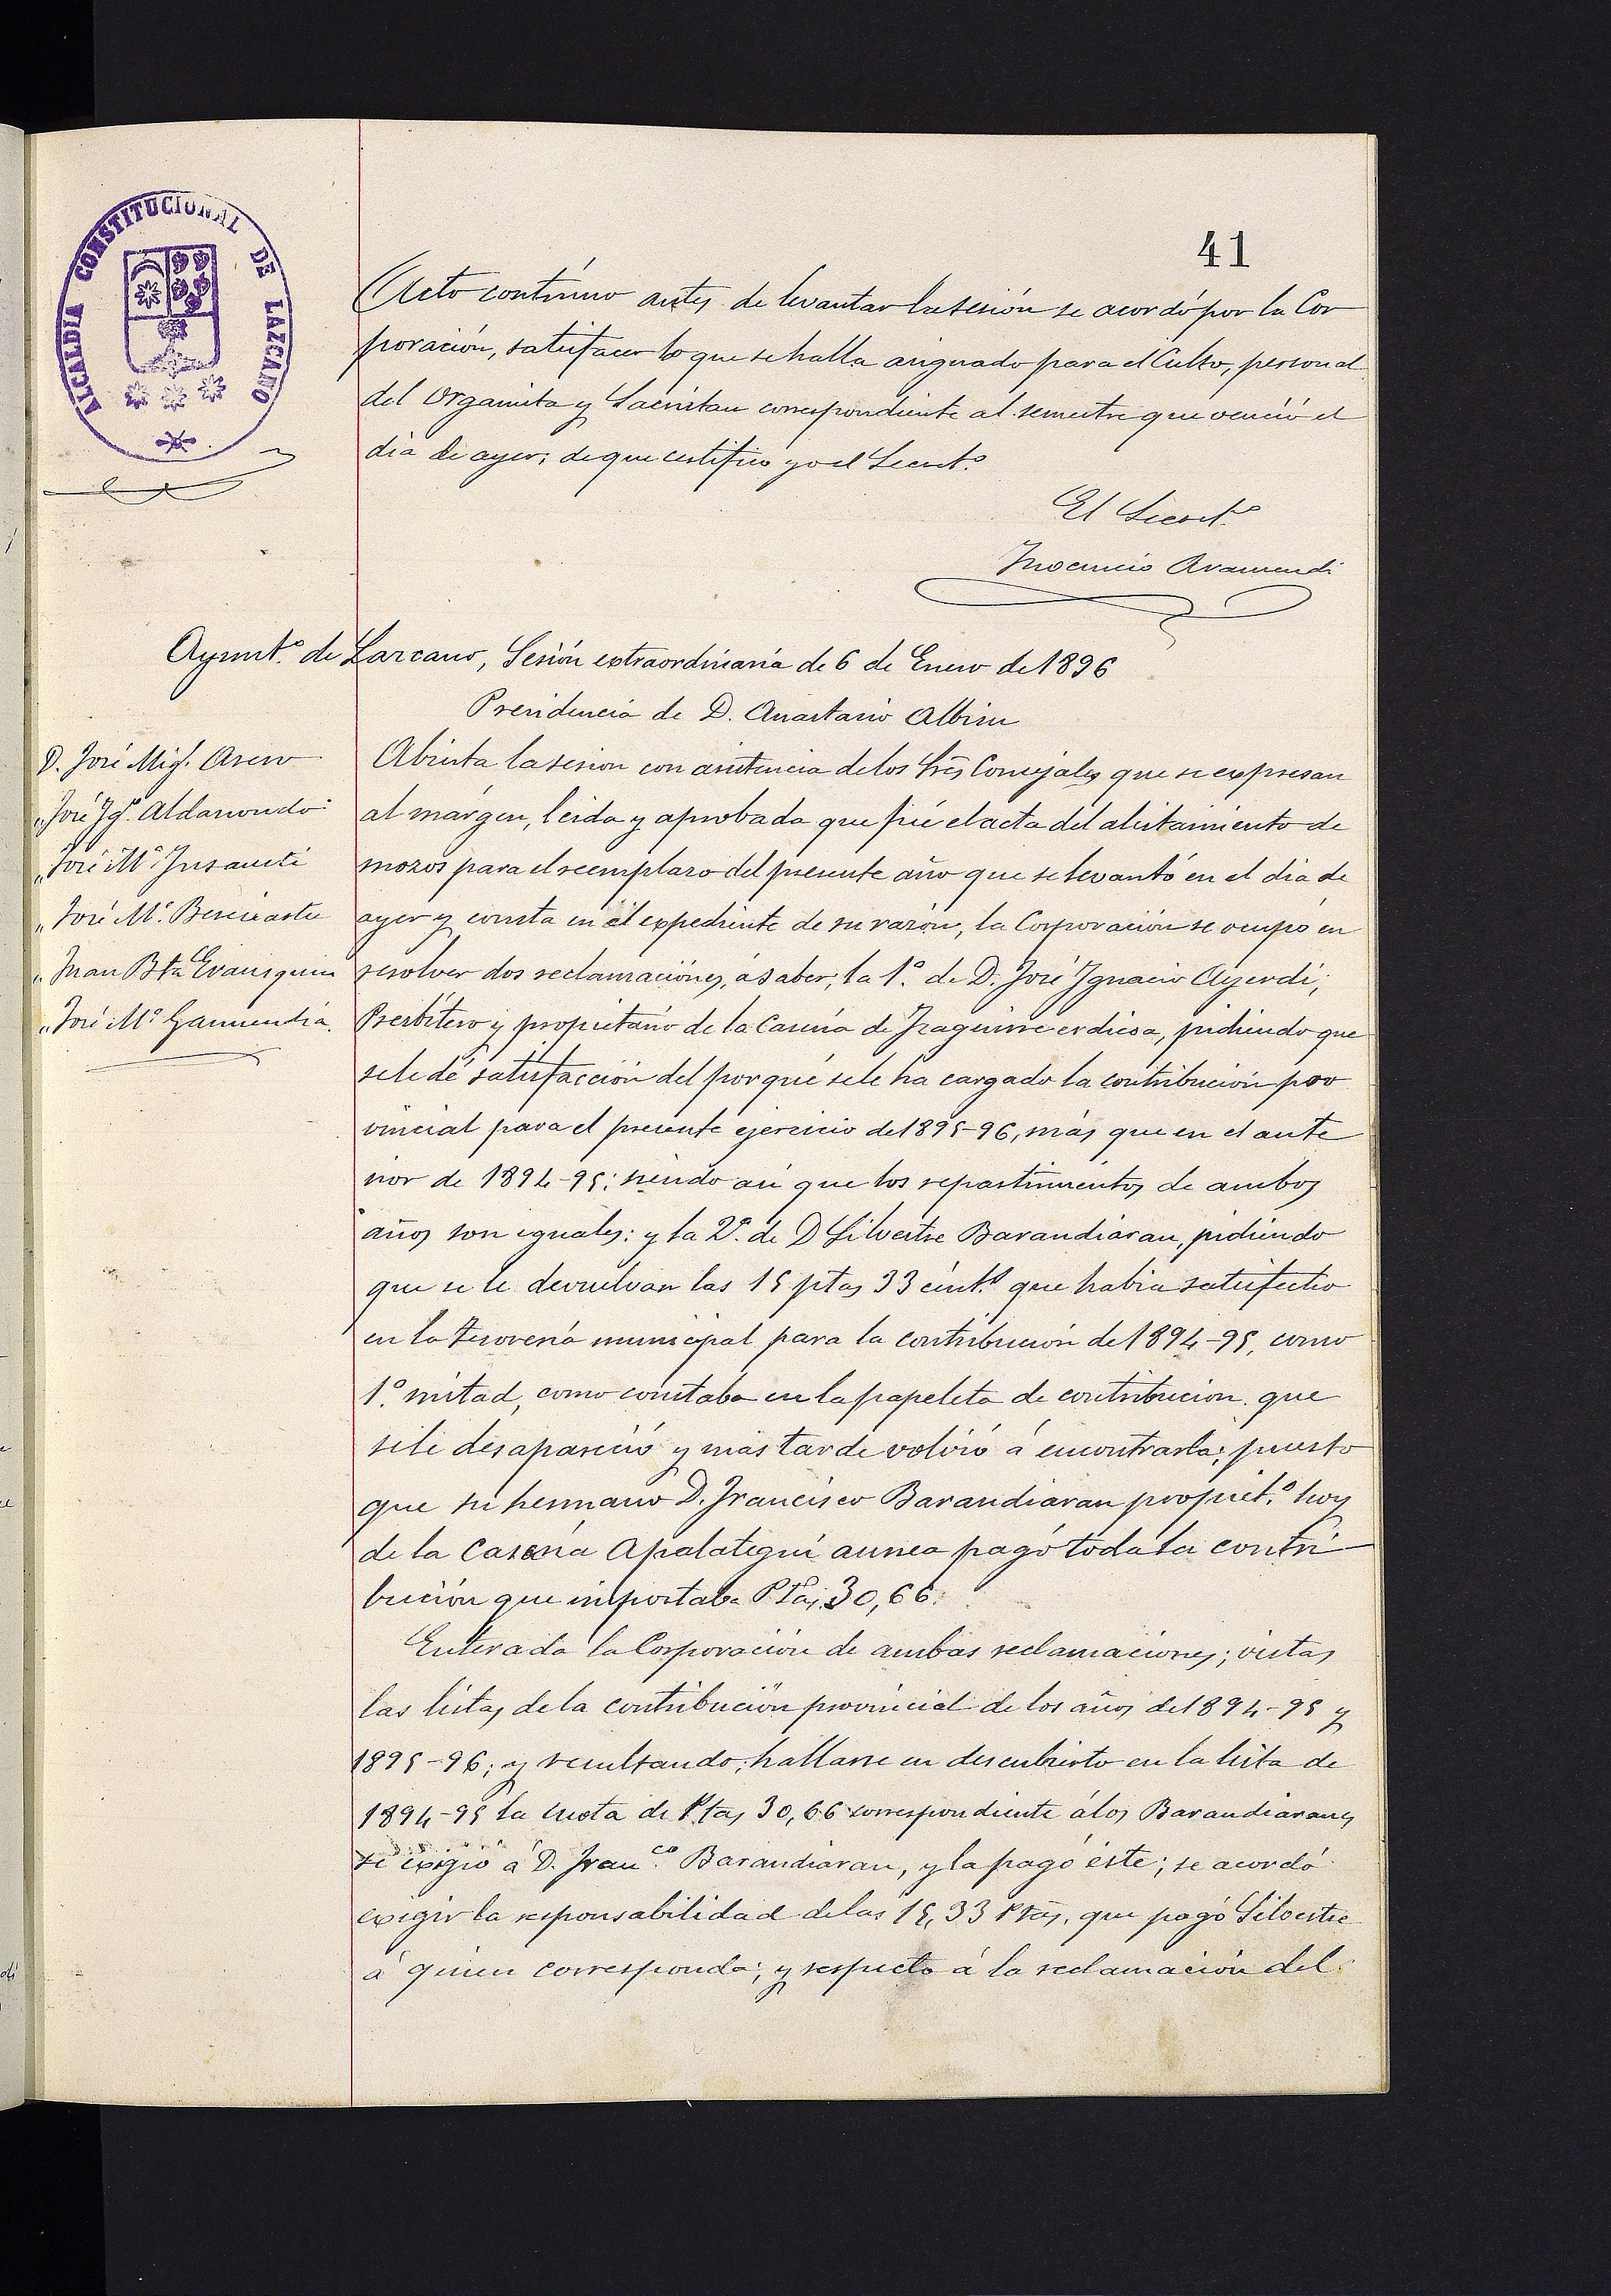 41
ALCALDIA CONSTITUCIONAL DE LAZCANO
Acto contínuo antes de levantar la sesión se acordó por la Cor
poración, satisfacer lo que se halla asignado para el Culto, personal
del Organista y Sacristan correspondiente al semestre que venció el
dia de ayer; de que certifico yo el Secret.º
El Secret.º
Inocencio Aramendi
Ayunt.º de Lazcano, Sesión extraordinaria de 6 de Enero de 1896
Presidencia de D. Anastasio Albisu
D. José Mig.l
„ José Ig.º Aldanondo
„ José M.ª Insausti
„ José M.ª Bereciartu
„ Juan Bta
„ José M.ª Garmendia.
Abierta la sesion con asistencia de los Srẽs Concejales que se expresan
al márgen, leida y aprobada que fué el acta del alistamiento de
mozos para el reemplazo del presente año que se levantó en el dia de
ayer y consta en el expediente de su razón, la Corporación se ocupó en
resolver dos reclamaciones, á saber; la 1.ª de D. José Ignacio Ayerdi,
Presbítero y propietario de la Casería de Izaguirre erdicoa, pidiendo que
se le dé satisfacción del por qué se le ha cargado la contribución pro
vincial para el presente ejercicio de 1895-96, más que en el ante
rior de 1894-95; siendo asi que los repartimientos de ambos
años son iguales: y la 2.ª de D Silvestre Barandiaran, pidiendo
que se le devuelvan las 15 ptas 33 cént.s que habia satisfecho
en la Tesorería municipal para la contribución de 1894-95, como
1.ª mitad, como constaba en la papeleta de contribucion que
se le desapareció y más tarde volvió á encontrarla; puesto
que su hermano D. Francisco Barandiaran propiet.º hoy
de la Casería Apalategui aunea pagó toda la contri
bución que importaba Ptas. 30,66.
Enterada la Corporación de ambas reclamaciones; vistas
las listas de la contribución provincial de los años de 1894-95 y
1895-96; y resultando; hallarse en descubierto en la lista de
1894-95 la cuota de Ptas 30,66 correspondiente á los Barandiaranes
se exigió á D. Fran.co Barandiaran, y la pagó éste; se acordó
exigir la responsabilidad de las 15,33 Ptas. que pagó Silvestre
á quien corresponda; y respecto á la reclamación del